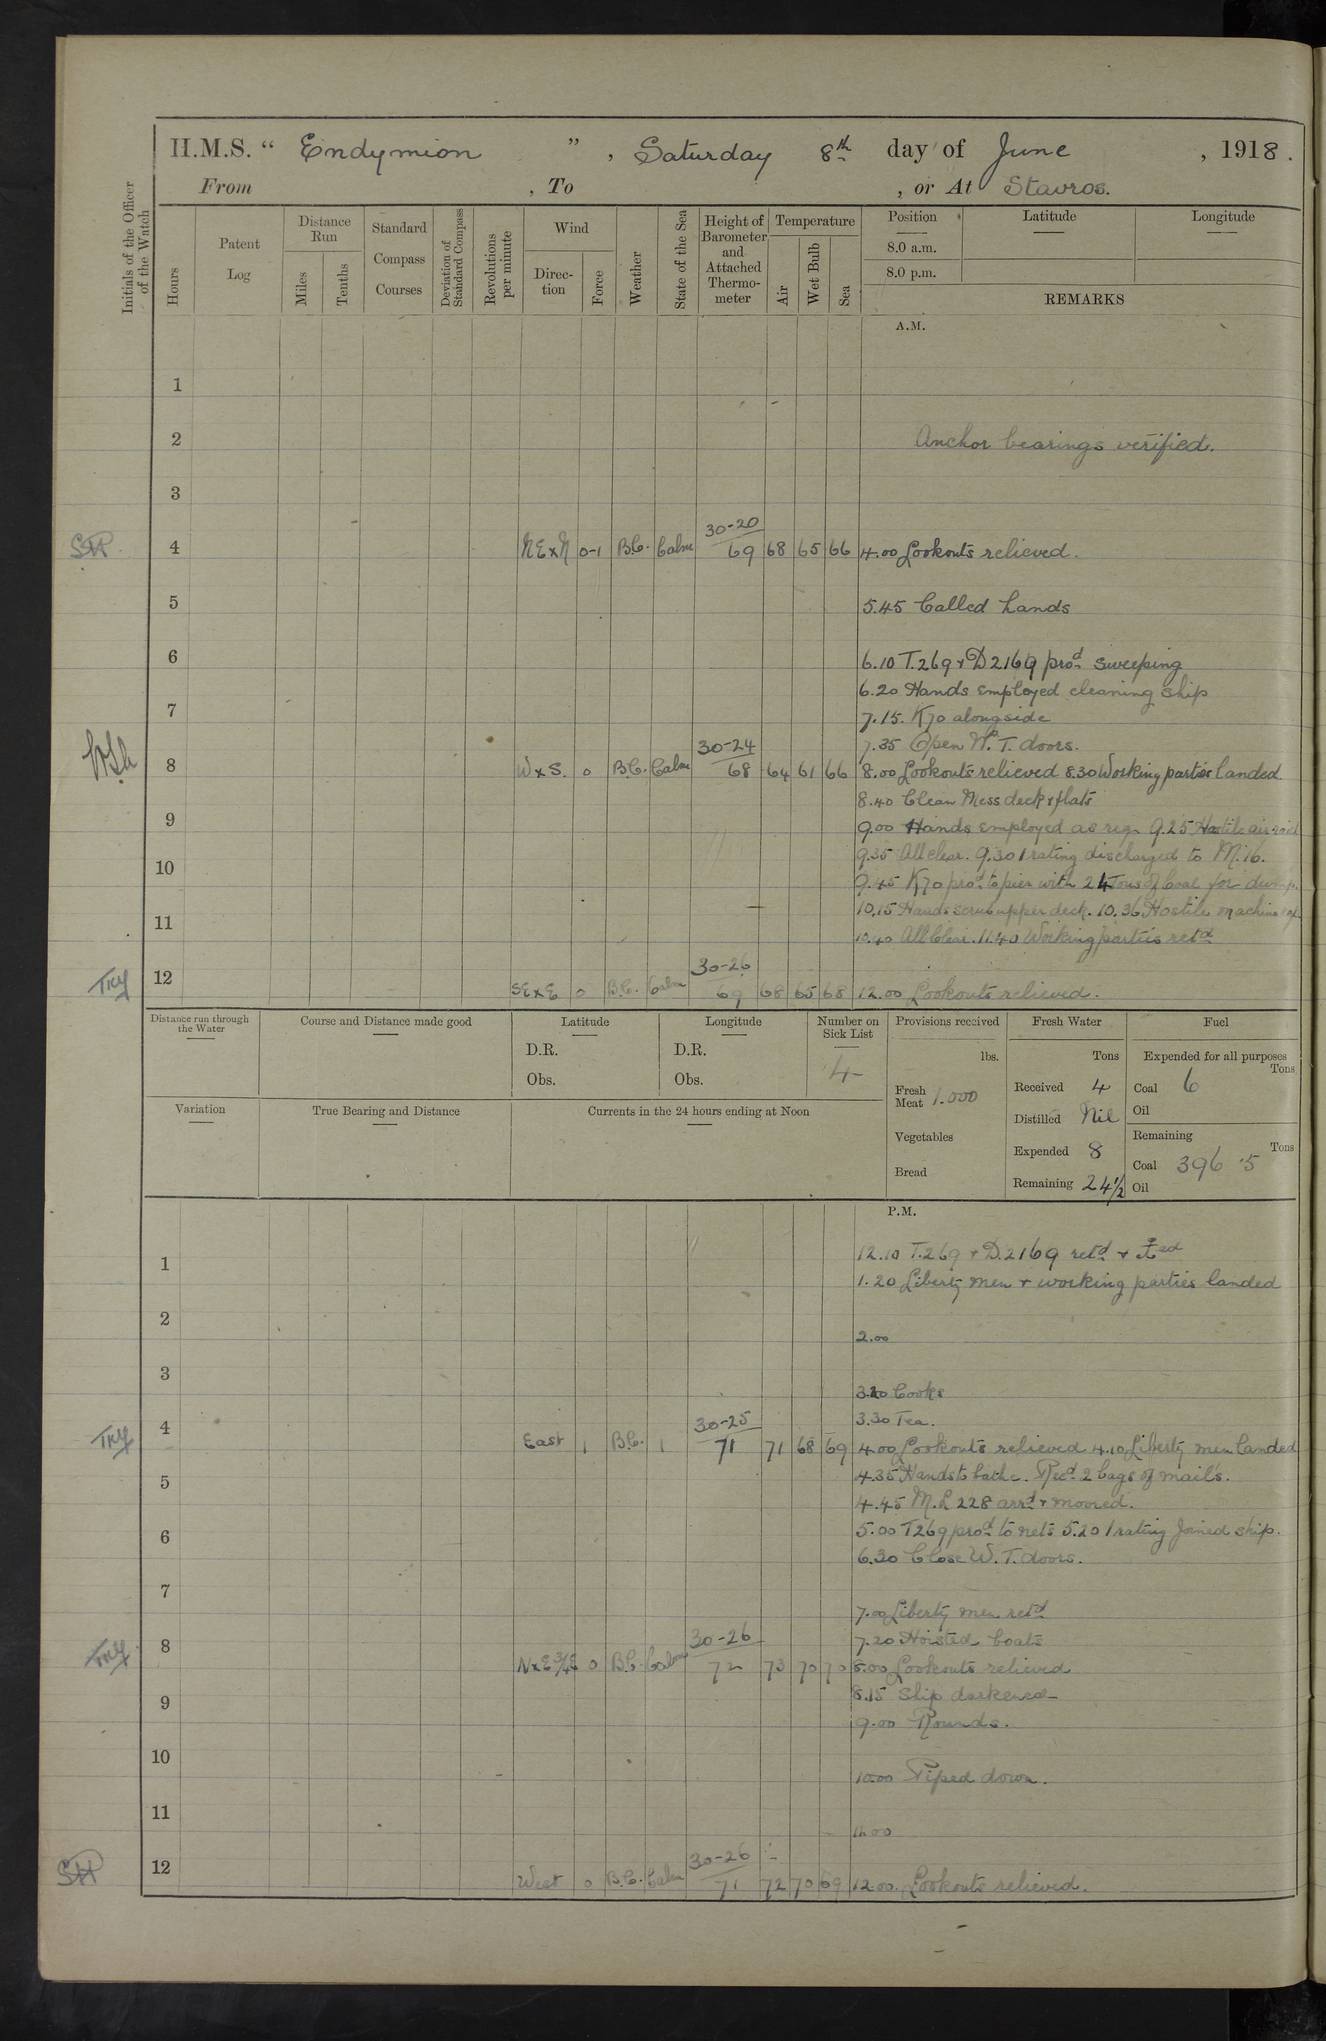 H.M.S. “ Endymion ” , Saturday 8th day of June , 1918.
From , To , or At Stavros.
Initials of the Officer of the Watch
Hours
Patent Log
Distance Run
Miles
Tenths
Standard Compass Courses
Deviation of Standard Compass
Revolutions per minute
Wind
Direc-tion
Force
Weather
State of the Sea
Height of Barometer and Attached Thermo-meter
Temperature
Air
Wet Bulb
Sea
Position
Latitude
Longitude
8.0 a.m.
8.0 p.m.
REMARKS
A.M.
1
2 Anchor bearings verified.
3
30-20
4 NExN 0-1 B.C. Calm 69 68 65 66 4.00 Lookouts relieved.
5 5.45 Called hands
6 6.10 T.269 & D2169 prod sweeping
6.20 Hands employed cleaning ship
7 7.15. K70 alongside
30-24 7.35 Open W.T. doors.
8 WxS. 0 B.C. Calm 68 64 61 66 8.00 Lookouts relieved 8.30 Working parties landed
8.40 Clean Mess deck & flats
9 9.00 Hands employed as req. 9.25 Hostile air raid
9.35 All clear. 9.30 1 rating discharged to M.16.
10 9.45 K70 prod to pier with 24 Tons of Coal for dump.
10.15 Hands scrub upper deck. 10.36 Hostile machine
11 10.40 All Clear. 11.40 Working parties retd
30-26
12 SExE 0 B.C. Calm 69 68 65 68 12.00 Lookouts relieved.
Distance run through the Water
Course and Distance made good
Latitude
D.R.
Obs.
Longitude
D.R.
Obs.
Number on Sick List
4
Provisions received
lbs.
Fresh Meat 1.000
Vegetables
Bread
Fresh Water
Tons
Received 4
Distilled Nil
Expended 8
Remaining 24½
Fuel
Expended for all purposes
Tons
Coal 6
Oil
Remaining
Tons
Coal 396.5
Oil
Variation
True Bearing and Distance
Currents in the 24 hours ending at Noon
P.M.
12.10 T.269 & D.2169 retd &
1 1.20 Liberty men & working parties landed
2 2.00
3 3.20 Cooks
30-25 3.30 Tea.
4 East 1 B.C. 1 71 71 68 69 4.00 Lookouts relieved 4.10 Liberty men landed
4.35 Hands to bathe. Recd 2 bags of mails.
5 4.45 M.L 228 arrd & moored.
6 5.00 T269 prod to nets 5.20 1 rating joined ship.
6.30 Close W.T. doors.
7 7.00 Liberty men retd
30-26 7.20 Hoisted boats
8 NxE¾E 0 B.C. Calm 72 73 70 70 8.00 Lookouts relieved
8.15 Ship darkened
9 9.00 Rounds.
10 10.00 Piped down.
11 11.00
30-26
12 West 0 B.C. Calm 71 72 70 69 12.00. Lookouts relieved.